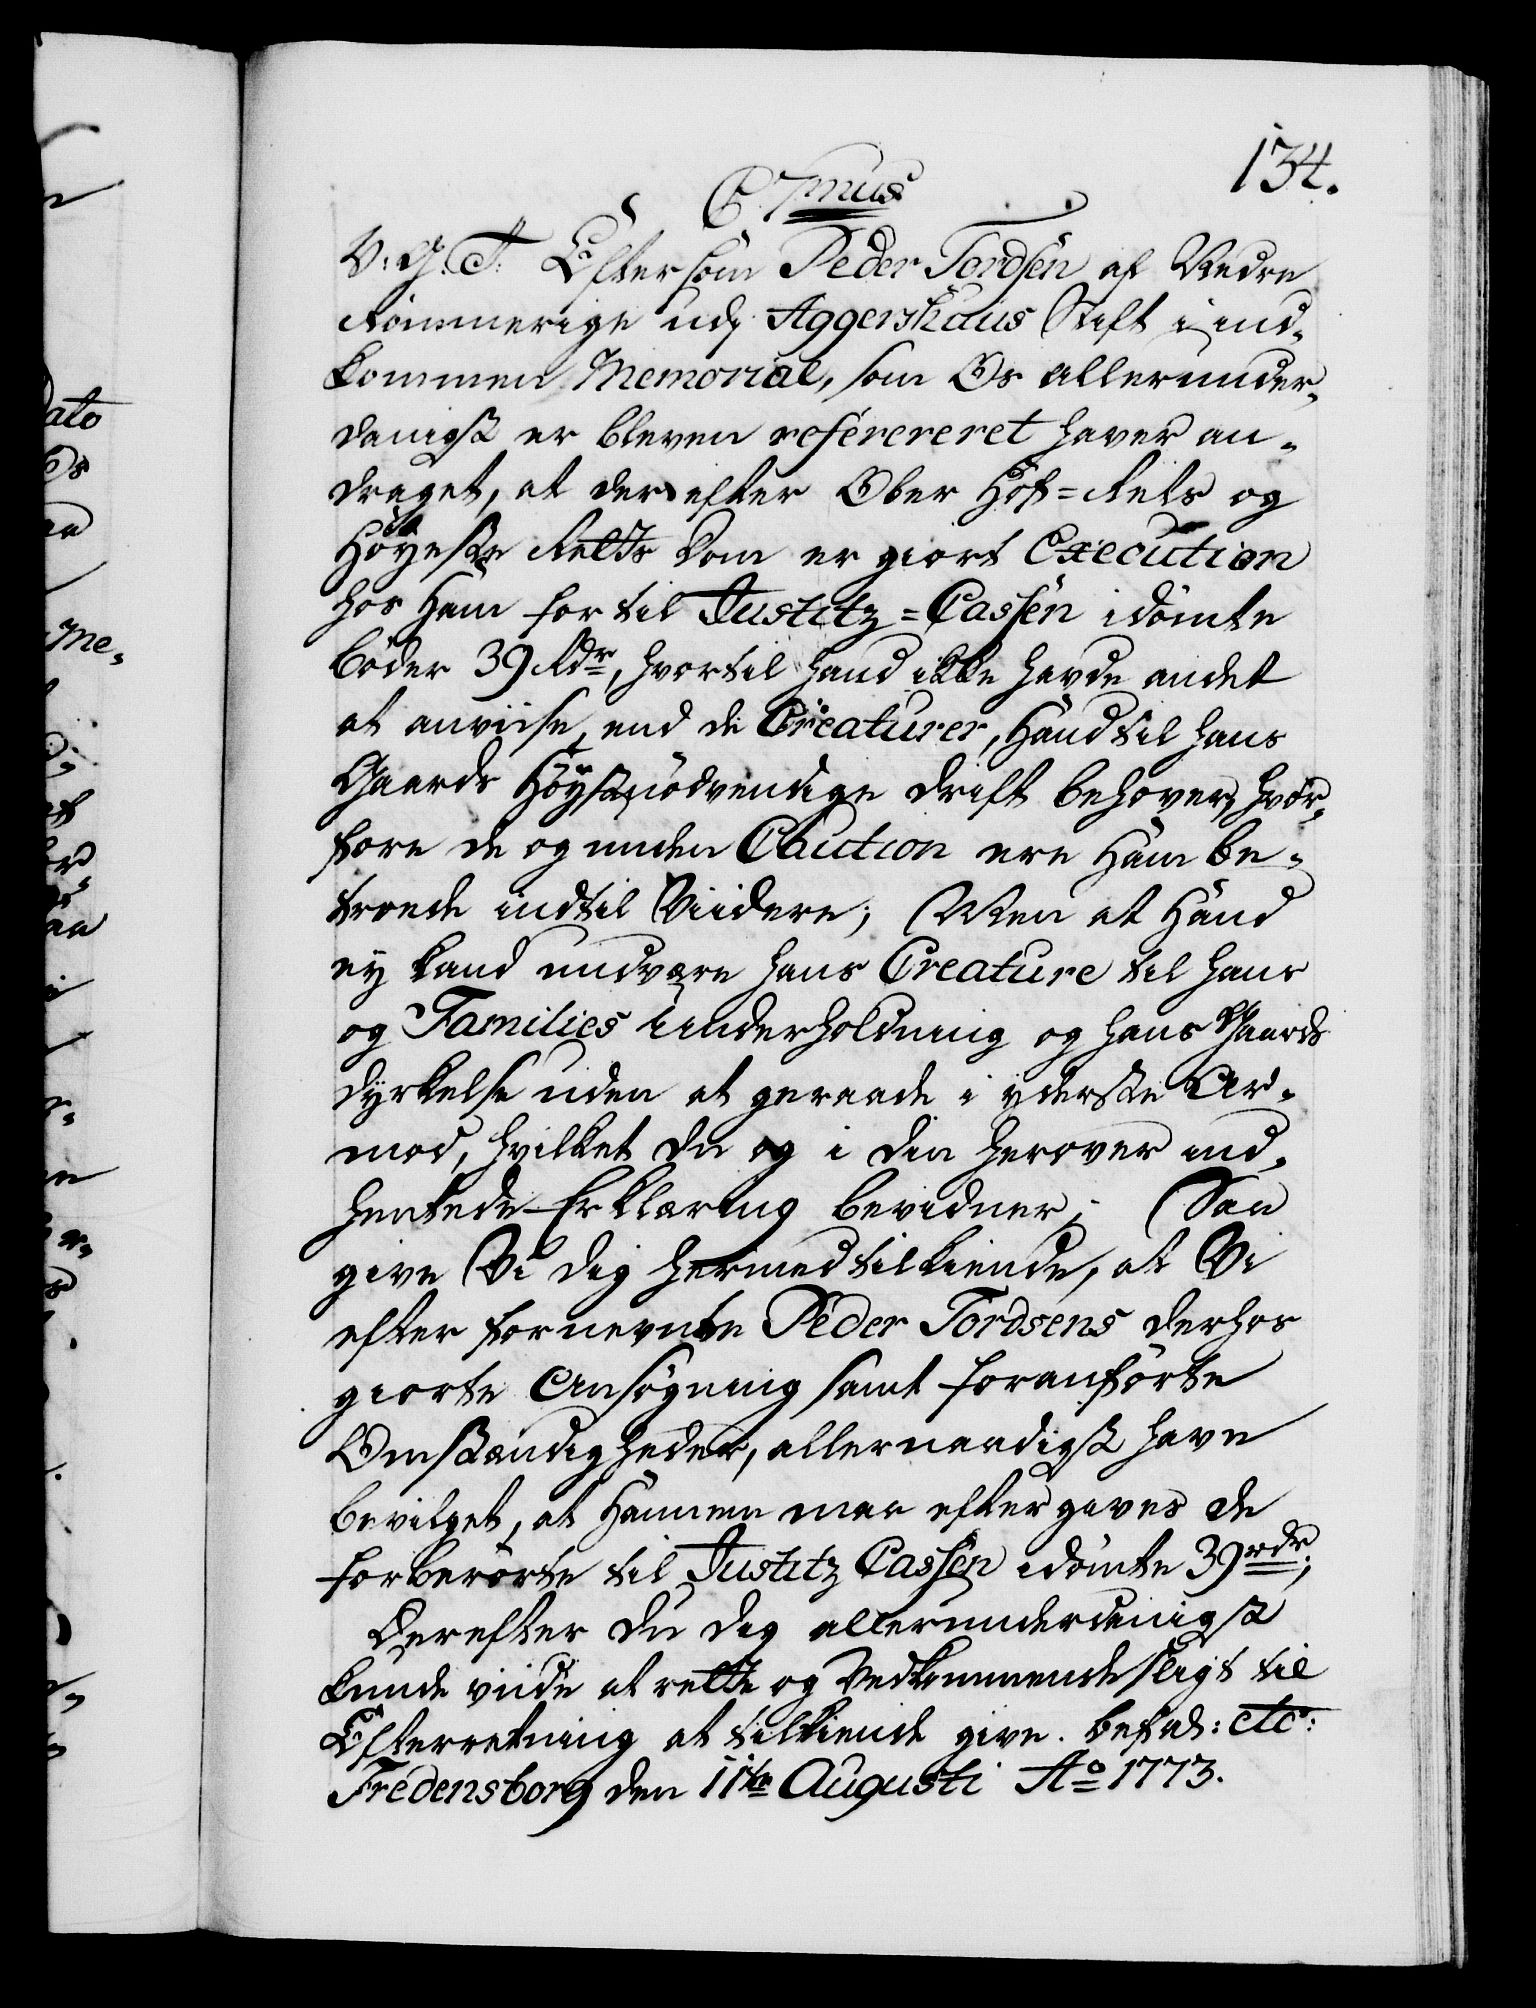 134.
C 7mus
V: G: T: Eftersom Peder Tordsen af Nedre
Rommerige udj Aggershuus Stift i ind-
kommen Memorial, som Os allerunder-
danigst er bleven refereret haver an-
draget, at der efter Ober Hof=Rets og
Høyeste Retts Dom er giort Execution
hos Ham for til Justitz=Cassen idømte
bøder 39 Rdr, hvortil hand ikke havde andet
at anviise, end de Creaturer, Hand til hans
Gaards Høystnødvendige drift behøver, hvor-
fore de og uden Caution ere Ham be-
troede indtil Viidere; Men at Hand
ey kand undvære hans Creature til hans
og Families Underholdning og hans Gaards
dyrkelse uden at geraade i yderste Ar-
mod, hvilket du og i din herover ind-
hentede Erklæring bevidner; Saa
give Vi dig hermed tilkiende, at Vi
efter fornevnte Peder Tordsens derhos
giorte Ansøgning samt foranførte
Omstændigheder, allernaadigst have
bevilget, at Hannem maa eftergives de
forberørte til Justitz Cassen idømte 39 rdr;
Derefter du dig allerunderdanigst
kunde viide at rette og Vedkommende sligt til
Efterretning at tilkiende give. befal: etc:
Fredensborg den 11te Augusti Ao 1773.